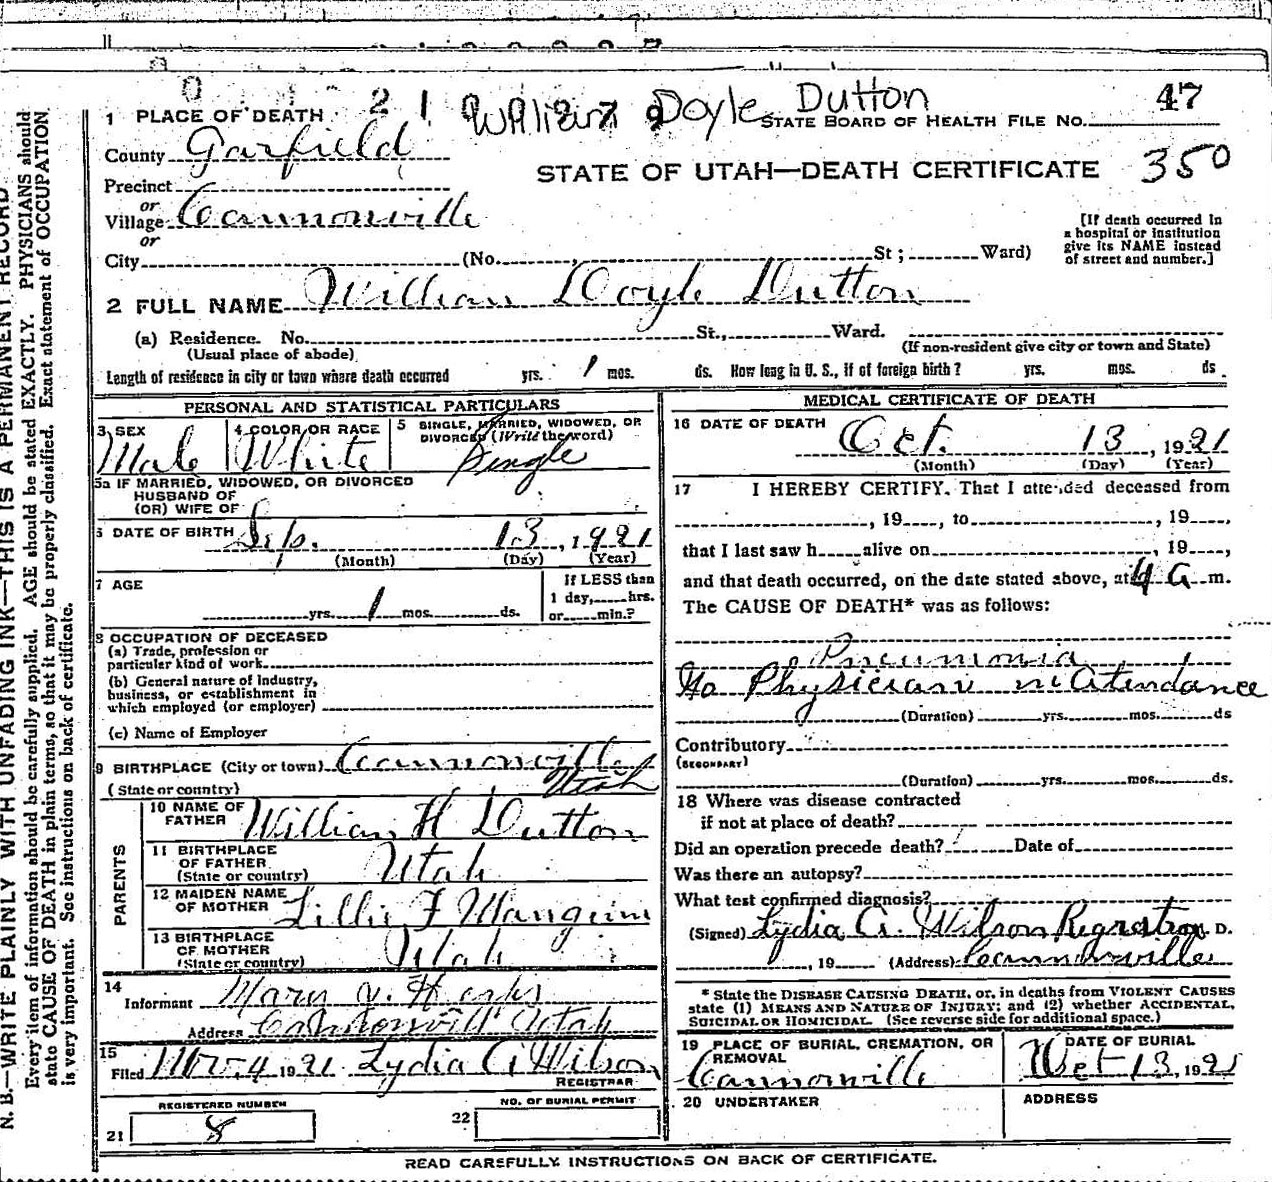 William Doyle Dutton 47
1 PLACE OF DEATH
STATE BOARD OF HEALTH FILE NO.
County Garfield
STATE OF UTAH—DEATH CERTIFICATE 350
Precinct
or
Village Cannonville
or
City (No. , St ; Ward)
[If death occurred in
a hospital or institution
give its NAME instead
of street and number.]
2 FULL NAME William Doyle Dutton
(a) Residence. No. St., Ward.
(Usual place of abode) (If non-resident give city or town and State)
Length of residence in city or town where death occurred yrs. 1 mos. ds. How long in U. S., if of foreign birth? yrs. mos. ds.
PERSONAL AND STATISTICAL PARTICULARS
3 SEX 4 COLOR OR RACE 5 SINGLE, MARRIED, WIDOWED, OR
DIVORCED (Write the word)
Male White Single
5a IF MARRIED, WIDOWED, OR DIVORCED
HUSBAND OF
(OR) WIFE OF
6 DATE OF BIRTH Sep. 13, 1921
(Month) (Day) (Year)
7 AGE
yrs. 1 mos. ds.
If LESS than
1 day, hrs.
or min.?
8 OCCUPATION OF DECEASED
(a) Trade, profession or
particular kind of work
(b) General nature of industry,
business, or establishment in
which employed (or employer)
(c) Name of Employer
9 BIRTHPLACE (City or town) Cannonville
(State or country) Utah
PARENTS
10 NAME OF
FATHER William H Dutton
11 BIRTHPLACE
OF FATHER
(State or country) Utah
12 MAIDEN NAME
OF MOTHER Lillie F Mangum
13 BIRTHPLACE
OF MOTHER
(State or country) Utah
14
Informant Mary V.
Address Cannonville Utah
15
Filed Nov. 4 1921 Lydia A Wilson
REGISTRAR
REGISTERED NUMBER
21 8
NO. OF BURIAL PERMIT
22
MEDICAL CERTIFICATE OF DEATH
16 DATE OF DEATH
Oct. 13, 1921
(Month) (Day) (Year)
17 I HEREBY CERTIFY, That I attended deceased from
, 19 , to , 19 ,
that I last saw h alive on , 19 ,
and that death occurred, on the date stated above, at 4 a m.
The CAUSE OF DEATH* was as follows:
Pneumonia
No Physician in Atendance
(Duration) yrs. mos. ds
Contributory
(SECONDARY)
(Duration) yrs. mos. ds.
18 Where was disease contracted
if not at place of death?
Did an operation precede death? Date of
Was there an autopsy?
What test confirmed diagnosis?
(Signed) Lydia A. Wilson Regrstrar D.
, 19 (Address) Cannonville
* State the DISEASE CAUSING DEATH, or, in deaths from VIOLENT CAUSES
state (1) MEANS AND NATURE OF INJURY; and (2) whether ACCIDENTAL,
SUICIDAL OR HOMICIDAL. (See reverse side for additional space.)
19 PLACE OF BURIAL, CREMATION, OR
REMOVAL
Cannonville
DATE OF BURIAL
Oct 13, 1921
20 UNDERTAKER
ADDRESS
READ CAREFULLY INSTRUCTIONS ON BACK OF CERTIFICATE.
N. B.—WRITE PLAINLY WITH UNFADING INK—THIS IS A PERMANENT RECORD
Every item of information should be carefully supplied. AGE should be stated EXACTLY. PHYSICIANS should
state CAUSE OF DEATH in plain terms, so that it may be properly classified. Exact statement of OCCUPATION
is very important. See instructions on back of certificate.